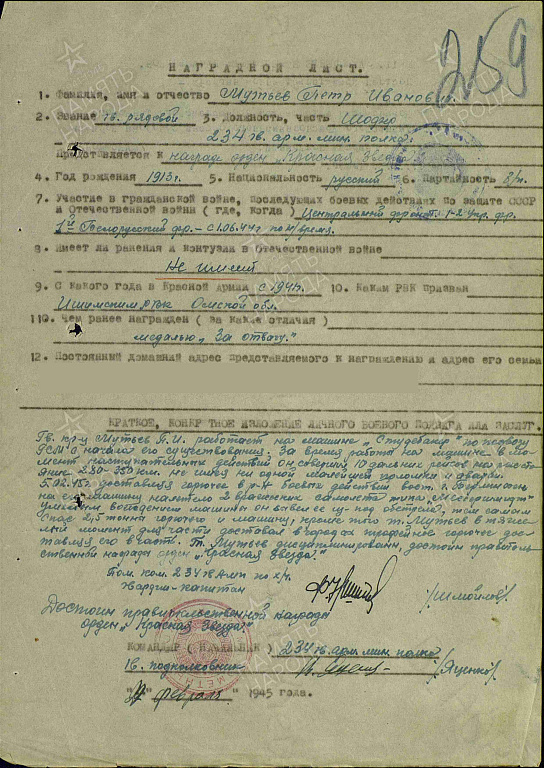 259
НАГРАДНОЙ ЛИСТ.
1. Фамилия, имя и отчество Мутьев Петр Иванович
2. Звание гв. рядовой 3. Должность, часть шофер
234 гв. арм. мин. полка.
Представляется к награде орден "Красная Звезда"
4. Год рождения 1913г. 5. Национальность русский 6. Партийность б/п
7. Участие в гражданской войне, последующих боевых действиях по защите СССР
и Отечественной войни (где, когда) Центральный фронт 1-2 Укр. фр.
1й Белорусский фр. - с 1.06.44г по н/время.
8. Имеет ли ранения и контузии в Отечественной войне
Не имеет
9. С какого года в Красной Армии с 1941г. 10. Каким РВК призван
Ишимским РВК Омской обл.
11. Чем ранее награжден (за какие отличия)
медалью "За отвагу."
12. Постоянный домашний адрес представляемого к награждению и адрес его семьи
КРАТКОЕ, КОНКРЕТНОЕ ИЗЛОЖЕНИЕ ЛИЧНОГО БОЕВОГО ПОДВИГА ИЛИ ЗАСЛУГ.
Гв. кр-ц Мутьев П.И. работает на машине "Студебакер" по подвозу
ГСМ с начала его существования. За время работы на машине в мо-
мент наступательных действий он совершил 10 дальних рейсов на расстоя-
ние 250-350 км. не имея ни одной малейшей поломки и аварии.
5.02.45г. доставляя горючее в р-н боевых действий вост.
на его машину налетело 2 вражеских самолета типа "Мессершмидт"
умелым вождением машины он вывел ее из-под обстрела, тем самым
спас 2,5 тонны горючего и машину, кроме того т. Мутьев в тяжес
лый момент для части доставал в городах трофейное горючее дос-
тавляя его в части. Т. Мутьев дисциплинирован, достоин правитель-
ственной награды орден "Красная Звезда".
Пом. ком. 234 гв Амп по х/ч.
Гвардии-капитан /Измойлов/
Достоин правительственной награды
орден "Красная Звезда"
КОМАНДИР (НАЧАЛЬНИК) 234 гв. арм. мин. полка
гв. подполковник /Яценко/
февраля 1945 года.